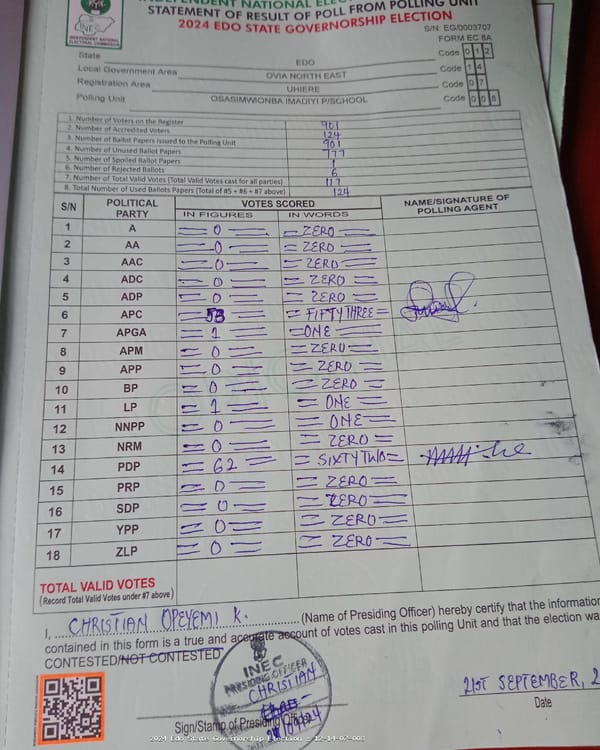 INDEPENDENT NATIONAL
STATEMENT OF RESULT OF POLL FROM POLLING UNIT
2024 EDO STATE GOVERNORSHIP ELECTION
INEC
INDEPENDENT NATIONAL
ELECTORAL COMMISSION
S/N: EG/0003707
FORM EC 8A
State EDO Code 0 1 2
Local Government Area OVIA NORTH EAST Code 1 4
Registration Area UHIERE Code 0 7
Polling Unit OSASIMWIONBA IMADIYI P/SCHOOL Code 0 0 8
1. Number of Voters on the Register 901
2. Number of Accredited Voters 124
3. Number of Ballot Papers Issued to the Polling Unit 901
4. Number of Unused Ballot Papers 777
5. Number of Spoiled Ballot Papers 1
6. Number of Rejected Ballots 6
7. Number of Total Valid Votes (Total Valid Votes cast for all parties) 117
8. Total Number of Used Ballots Papers (Total of #5 + #6 + #7 above) 124
S/N POLITICAL PARTY VOTES SCORED NAME/SIGNATURE OF POLLING AGENT
IN FIGURES IN WORDS
1 A 0 ZERO
2 AA 0 ZERO
3 AAC 0 ZERO
4 ADC 0 ZERO
5 ADP 0 ZERO
6 APC 53 FIFTYTHREE
7 APGA 1 ONE
8 APM 0 ZERO
9 APP 0 ZERO
10 BP 0 ZERO
11 LP 1 ONE
12 NNPP 0 ONE
13 NRM 0 ZERO
14 PDP 62 SIXTYTWO
15 PRP 0 ZERO
16 SDP 0 ZERO
17 YPP 0 ZERO
18 ZLP 0 ZERO
TOTAL VALID VOTES
(Record Total Valid Votes under #7 above)
I, CHRISTIAN OPEYEMI K. (Name of Presiding Officer) hereby certify that the information
contained in this form is a true and accurate account of votes cast in this polling Unit and that the election was
CONTESTED/NOT CONTESTED
INEC
PRESIDING OFFICER
CHRISTIAN
21ST SEPTEMBER, 2
Sign/Stamp of Presiding Officer
Date
2024 Edo State Governorship Election - 12-14-07-008